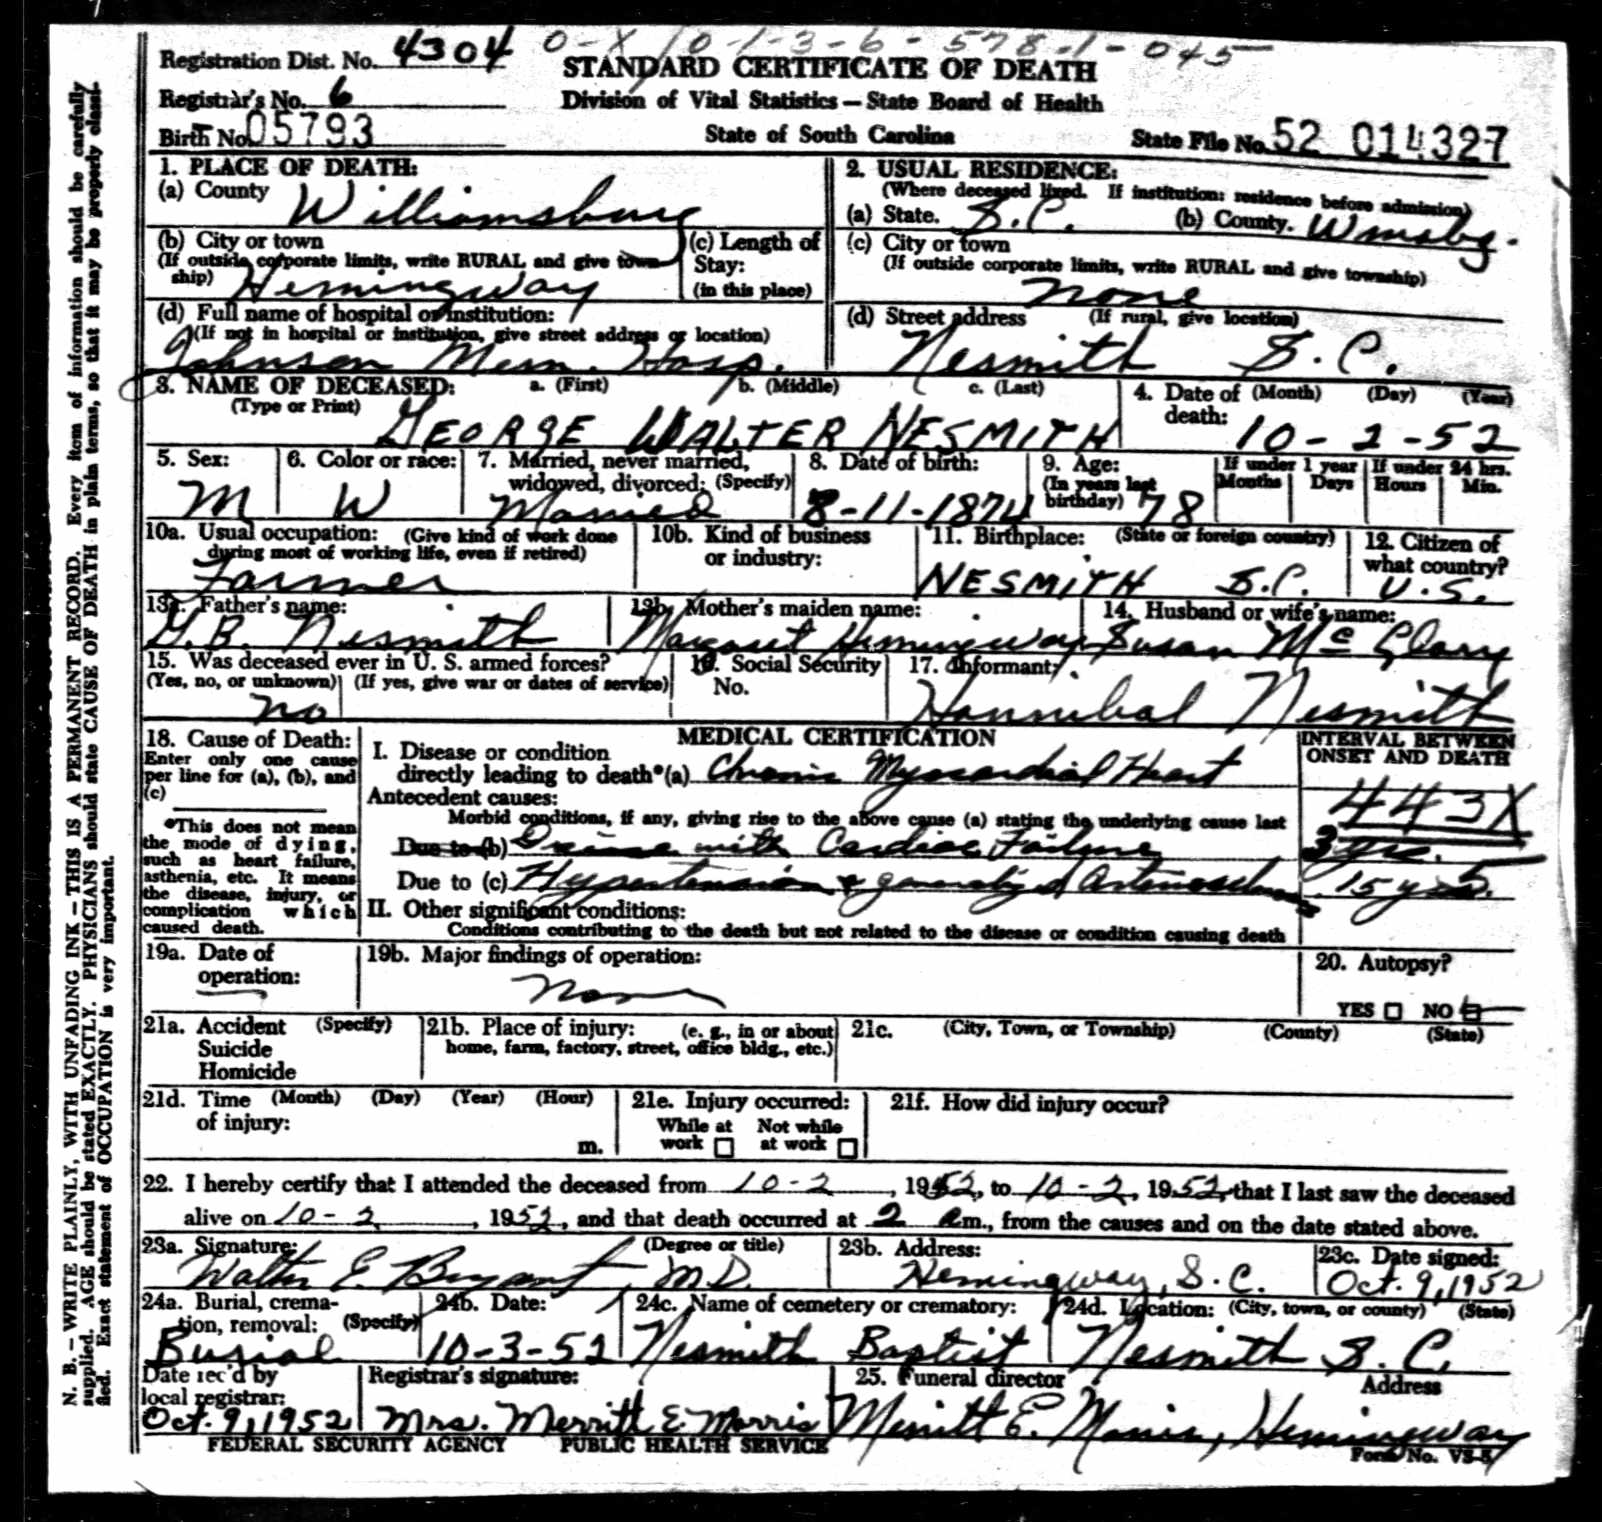 Registration Dist. No. 4304 0-X 10-1-3-6-578.1-045
STANDARD CERTIFICATE OF DEATH
Registrar's No. 6
Division of Vital Statistics — State Board of Health
Birth No. 05793
State of South Carolina
State File No. 52 014327
1. PLACE OF DEATH:
(a) County Williamsburg
(b) City or town
(If outside corporate limits, write RURAL and give township) Hemingway
(c) Length of Stay:
(in this place)
(d) Full name of hospital or institution:
(If not in hospital or institution, give street address or location)
Johnson Mem. Hosp.
2. USUAL RESIDENCE:
(Where deceased lived. If institution: residence before admission)
(a) State. S.C. (b) County. Wmsbg.
(c) City or town
(If outside corporate limits, write RURAL and give township)
none
(d) Street address (If rural, give location)
Nesmith S.C.
3. NAME OF DECEASED: a. (First) b. (Middle) c. (Last)
(Type or Print) GEORGE WALTER NESMITH
4. Date of death: (Month) (Day) (Year)
10-2-52
5. Sex: M
6. Color or race: W
7. Married, never married, widowed, divorced: (Specify) Married
8. Date of birth: 8-11-1874
9. Age: (In years last birthday) 78
If under 1 year Months Days
If under 24 hrs. Hours Min.
10a. Usual occupation: (Give kind of work done during most of working life, even if retired)
Farmer
10b. Kind of business or industry:
11. Birthplace: (State or foreign country)
NESMITH S.C.
12. Citizen of what country?
U.S.
13a. Father's name:
G.B. Nesmith
13b. Mother's maiden name:
Margaret Hemingway
14. Husband or wife's name:
Susan McClary
15. Was deceased ever in U. S. armed forces?
(Yes, no, or unknown) (If yes, give war or dates of service)
no
16. Social Security No.
17. Informant:
Hannibal Nesmith
18. Cause of Death:
Enter only one cause per line for (a), (b), and (c)
*This does not mean the mode of dying, such as heart failure, asthenia, etc. It means the disease, injury, or complication which caused death.
MEDICAL CERTIFICATION
I. Disease or condition
directly leading to death* (a) Chronic Myocardial Heart
Antecedent causes:
Morbid conditions, if any, giving rise to the above cause (a) stating the underlying cause last
Due to (b) Disease with Cardiac Failure
Due to (c) Hypertension & generalized
II. Other significant conditions:
Conditions contributing to the death but not related to the disease or condition causing death
INTERVAL BETWEEN ONSET AND DEATH
443X
3 yrs.
15 yrs.
19a. Date of operation:
19b. Major findings of operation:
None
20. Autopsy?
YES NO
21a. Accident (Specify)
Suicide
Homicide
21b. Place of injury: (e. g., in or about home, farm, factory, street, office bldg., etc.)
21c. (City, Town, or Township) (County) (State)
21d. Time (Month) (Day) (Year) (Hour)
of injury: m.
21e. Injury occurred:
While at work Not while at work
21f. How did injury occur?
22. I hereby certify that I attended the deceased from 10-2, 1952, to 10-2, 1952, that I last saw the deceased
alive on 10-2, 1952, and that death occurred at 2 a m., from the causes and on the date stated above.
23a. Signature: (Degree or title)
Walter E. Bryant, M.D.
23b. Address:
Hemingway, S.C.
23c. Date signed:
Oct. 9, 1952
24a. Burial, cremation, removal: (Specify)
Burial
24b. Date:
10-3-52
24c. Name of cemetery or crematory:
Nesmith Baptist
24d. Location: (City, town, or county) (State)
Nesmith S.C.
Date rec'd by local registrar:
Oct. 9, 1952
Registrar's signature:
Mrs. Merritt E. Morris
25. Funeral director Address
Merritt E. Morris, Hemingway
FEDERAL SECURITY AGENCY PUBLIC HEALTH SERVICE
Form No. VS-5
N. B. — WRITE PLAINLY, WITH UNFADING INK — THIS IS A PERMANENT RECORD. Every item of information should be carefully
supplied. AGE should be stated EXACTLY. PHYSICIANS should state CAUSE OF DEATH in plain terms, so that it may be properly classi-
fied. Exact statement of OCCUPATION is very important.